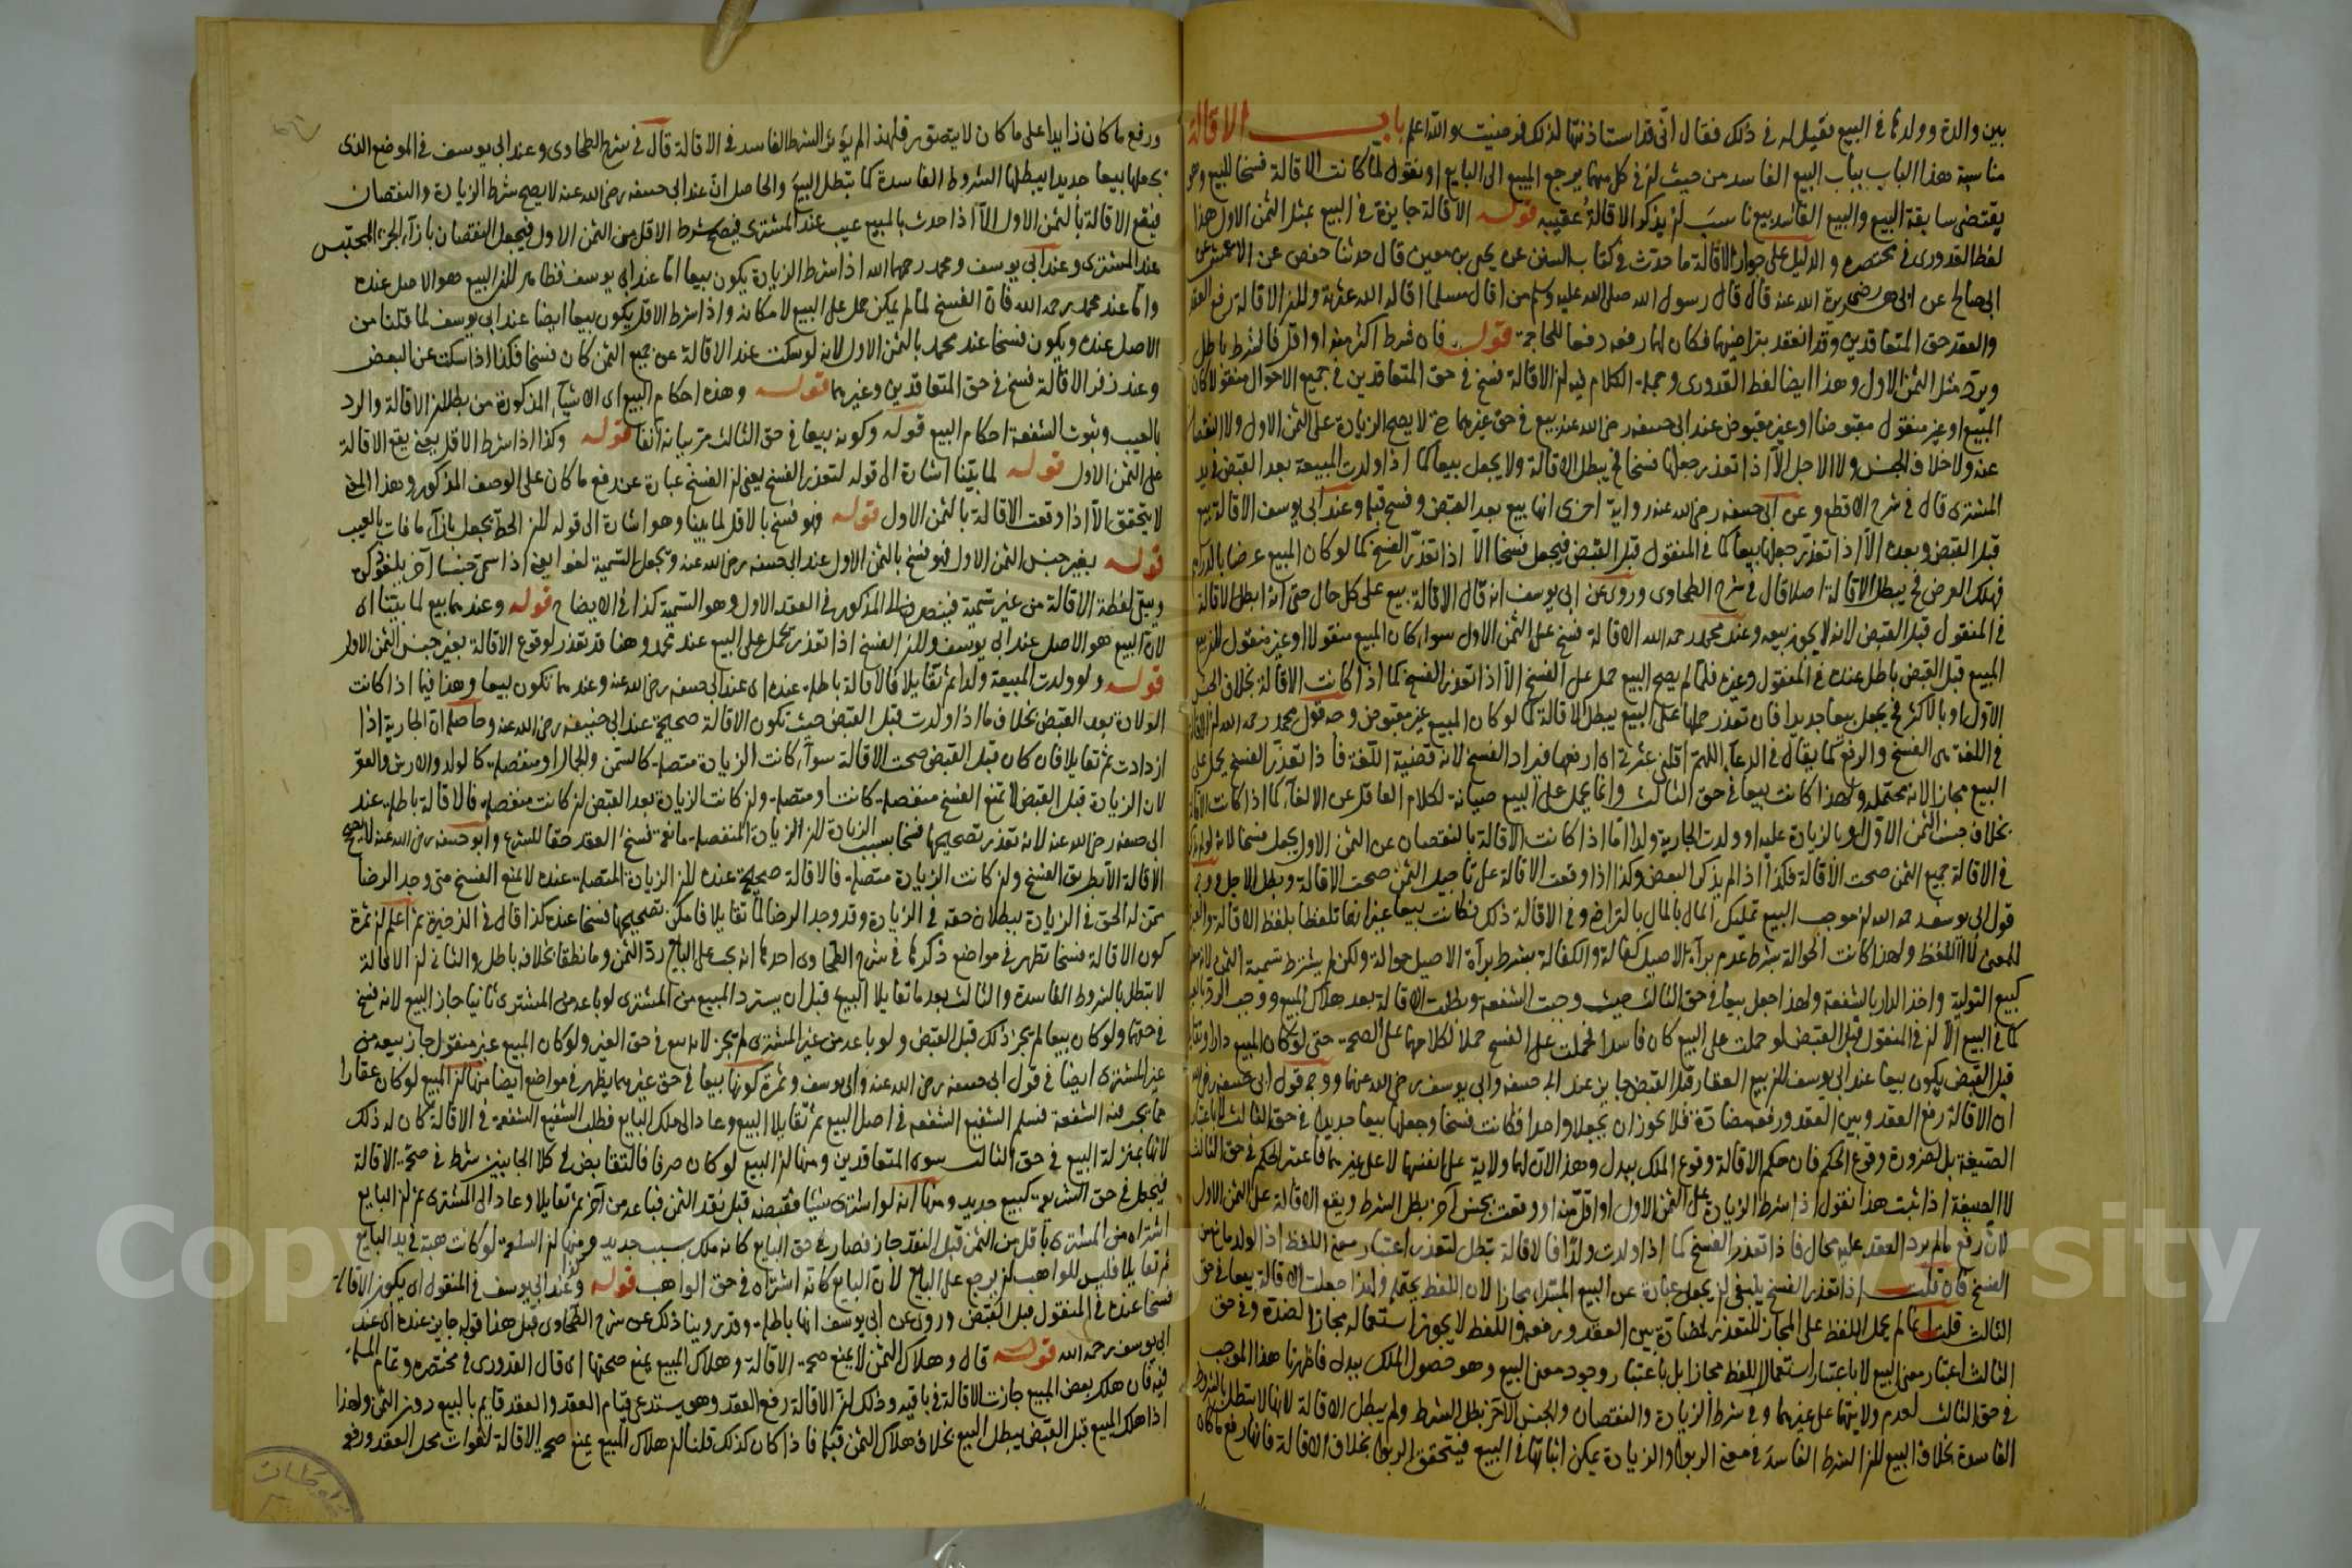 بين والدة وولدها في البيع فقيل له في ذلك فقال اني قد استاذنتها لذلك فرضيت والله اعلم باب الاقالة
مناسبة هذا الباب بباب البيع الفاسد من حيث ان في كل منهما يرجع المبيع الى البايع او نقول لما كانت الاقالة فسخا للبيع وهو
يقتضي سابقة البيع والبيع الفاسد بيع ناسب ان يذكر الاقالة عقيبه قوله الاقالة جايزة في البيع بمثل الثمن الاول هذا
لفظ القدوري في مختصره والدليل على جواز الاقالة ما حدث في كتاب السنن عن يحيى بن معين قال حدثنا حفص عن الاعمش عن
ابي صالح عن ابي هريرة رضي الله عنه قال قال رسول الله صلى الله عليه وسلم من اقال مسلما اقاله الله عثرته ولان الاقالة رفع العقد
والعقد حق المتعاقدين وقد انعقد بتراضيهما فكان لهما رفعه دفعا للحاجة قوله فان شرط اكثر منه او اقل فالشرط باطل
ويرد مثل الثمن الاول وهذا ايضا لفظ القدوري وجملة الكلام فيه ان الاقالة فسخ في حق المتعاقدين في جميع الاحوال منقولا كان
المبيع او غير منقول مقبوضا او غير مقبوض عند ابي حنيفه رضي الله عنه بيع في حق غيرهما لا يصح الزيادة على الثمن الاول ولا النقصان
عنه ولا خلاف الجنس ولا الاجل الا اذا تعذر جعلها فسخا يبطل الاقالة ولا يجعل بيعا كما اذا ولدت المبيعة بعد القبض في يد
المشتري قال في شرح الاقطع وعن ابي حنيفه رضي الله عنه رواية اخرى انها بيع بعد القبض وفسخ قبله وعند ابي يوسف الاقالة بيع
قبل القبض وبعده الا اذا تعذر جعلها بيعا كما في المنقول قبل القبض فيجعل فسخا الا اذا تعذر الفسخ كما لو كان المبيع عرضا بالدراهم
فهلك العرض يبطل الاقالة اصلا قال في شرح الطحاوي وروي عن ابي يوسف انه قال الاقالة بيع على كل حال حتى انه ابطل الاقالة
في المنقول قبل القبض لانه لا يجوز بيعه وعند محمد رحمه الله الاقالة فسخ على الثمن الاول سواء كان المبيع منقولا او غير منقول لان بيع
المبيع قبل القبض باطل عنده في المنقول وغيره فلما لم يصح البيع حمل على الفسخ الا اذا تعذر الفسخ كما اذا كانت الاقالة بخلاف الجنس
الاول او بالاكثر يجعل بيعا جديدا فان تعذر حملها على البيع يبطل الاقالة كما لو كان المبيع غير مقبوض وجه قول محمد رحمه الله ان الاقالة
في اللغة هي الفسخ والرفع كما يقال في الدعاء اللهم اقلني عثرتي اي ارفعها فيراد الفسخ لانه قضية اللغة فاذا تعذر الفسخ يحمل على
البيع مجازا لانه محتمله ولهذا كانت بيعا في حق الثالث وانما يحمل على البيع صيانة لكلام العاقل عن الالغاء كما اذا كانت الاقالة
بخلاف جنس الثمن الاول او بالزيادة عليه او ولدت الجارية ولدا اما اذا كانت الاقالة بالنقصان عن الثمن الاول يجعل فسخا
في الاقالة جميع الثمن صحت الاقالة فكذا اذا لم يذكر البعض وكذا اذا وقعت الاقالة على تاجيل الثمن صحت الاقالة وبطل الاجل وجه
قول ابي يوسف رحمه الله ان موجب البيع تمليك المال بالمال بالتراضي وفي الاقالة ذلك فكانت بيعا غير انها تلفظا بلفظ الاقالة والعبرة
للمعنى لا اللفظ ولهذا كانت الحوالة بشرط عدم براءة الاصيل كفالة والكفالة بشرط براءة الاصيل حوالة ولكن لم يشترط تسمية الثمن
كبيع التولية واخذ الدار بالشفعة ولهذا جعل بيعا في حق الثالث حيث وجبت الشفعة وبطلت الاقالة بعد هلاك المبيع ووجب الرد بالعيب
كما في البيع الا ان في المنقول قبل القبض لو حملت على البيع كان فاسدا فحملت على الفسخ حملا لكلامهما على الصحة حتى لو كان المبيع دارا وتقايلا
قبل القبض يكون بيعا عند ابي يوسف لان بيع العقار قبل القبض جايز عند ابي حنيفه وابي يوسف رضي الله عنهما ووجه قول ابي حنيفه رضي الله
ان الاقالة رفع العقد وبين العقد ورفعه مضادة فلا يجوز ان يجعلا واحدا فكانت فسخا وجعلها بيعا جديدا في حق الثالث لا باعتبار
الصيغة بل لضرورة وقوع الحكم فان حكم الاقالة وقوع الملك ببدل وهذا لان لهما ولاية على انفسهما لا على غيرهما فاعتبر الحكم في حق الثالث
لا الصيغة اذا ثبت هذا نقول اذا شرط الزيادة على الثمن الاول او اقل منه او وقعت بجنس آخر بطل الشرط ويقع الاقالة على الثمن الاول
لان رفع ما لم يرد العقد عليه محال فاذا تعذر الفسخ كما اذا ولدت ولدا فالاقالة تبطل لتعذر اعتبار معنى اللفظ اذ الولد مانع من
الفسخ فان قلت اذا تعذر الفسخ ينبغي ان يجعل عبارة عن البيع المبتدا مجازا لان اللفظ يحتمله ولهذا جعلت الاقالة بيعا في حق
الثالث قلت انما لم يحمل اللفظ على المجاز للتعذر لمضادة بين العقد ورفعه واللفظ لا يجوز استعماله مجازا لضده وفي حق
الثالث اعتبار معنى البيع لا باعتبار استعمال اللفظ مجازا بل باعتبار وجود معنى البيع وهو حصول الملك ببدل فاظهرنا هذا الموجب
في حق الثالث لعدم ولايتهما على غيرهما وفي شرط الزيادة والنقصان والجنس الآخر بطل الشرط ولم يبطل الاقالة لانها لا يبطل بالشروط
الفاسدة بخلاف البيع لان الشرط الفاسد في معنى الربوا والزيادة يمكن اثباتها في البيع فيتحقق الربوا بخلاف الاقالة فانها رفع ما كان
ورفع ما كان زايدا على ما كان لا يتصور فلهذا لم يؤثر الشرط الفاسد في الاقالة قال في شرح الطحاوي وعند ابي يوسف في الموضع الذي
يجعلها بيعا جديدا يبطلها الشروط الفاسدة كما يبطل البيع والحاصل ان عند ابي حنيفه رضي الله عنه لا يصح شرط الزيادة والنقصان
فيقع الاقالة بالثمن الاول الا اذا حدث بالمبيع عيب عند المشتري فيصح شرط الاقل من الثمن الاول فيجعل النقصان بازاء الجزء المحتبس
عند المشتري وعند ابي يوسف ومحمد رحمهما الله اذا شرط الزيادة يكون بيعا اما عند ابي يوسف فظاهر لان البيع هو الاصل عنده
واما عند محمد رحمه الله فان الفسخ لما لم يمكن حمل على البيع لامكانه واذا شرط الاقل يكون بيعا ايضا عند ابي يوسف لما قلنا من
الاصل عنده ويكون فسخا عند محمد بالثمن الاول لانه لو سكت عند الاقالة عن جميع الثمن كان فسخا فكذا اذا سكت عن البعض
وعند زفر الاقالة فسخ في حق المتعاقدين وغيرهما قوله وهذه احكام البيع اي الاشياء المذكورة من بطلان الاقالة والرد
بالعيب وثبوت الشفعة احكام البيع قوله وكونه بيعا في حق الثالث مر بيانه آنفا قوله وكذا اذا شرط الاقل يعني يقع الاقالة
على الثمن الاول قوله لما بينا اشارة الى قوله لتعذر الفسخ يعني ان الفسخ عبارة عن رفع ما كان على الوصف المذكور وهذا المعنى
لا يتحقق الا اذا وقعت الاقالة بالثمن الاول قوله فهو فسخ بالاقل لما بينا وهو اشارة الى قوله لان الحط يجعل بازاء ما فات بالعيب
قوله بغير جنس الثمن الاول فهو فسخ بالثمن الاول عند ابي حنيفه رضي الله عنه ويجعل التسمية لغوا يعني اذا سمى جنسا آخر يلغو ذكره
ويبقى لفظة الاقالة من غير تسمية فينصرف الى المذكور في العقد الاول وهو التسمية كذا في الايضاح قوله وعندهما بيع لما بينا اي
لان البيع هو الاصل عند ابي يوسف ولان الفسخ اذا تعذر يحمل على البيع عند محمد وهنا قد تعذر لوقوع الاقالة بغير جنس الثمن الاول
قوله ولو ولدت المبيعة ولدا ثم تقايلا فالاقالة باطلة عنده اي عند ابي حنيفه رضي الله عنه وعندهما تكون بيعا وهذا فيما اذا كانت
الولادة بعد القبض بخلاف ما اذا ولدت قبل القبض حيث تكون الاقالة صحيحة عند ابي حنيفه رضي الله عنه وحاصله ان الجارية اذا
ازدادت ثم تقايلا فان كان قبل القبض صحت الاقالة سواء كانت الزيادة متصلة كالسمن والجمال او منفصلة كالولد والارش والعقر
لان الزيادة قبل القبض لا تمنع الفسخ منفصلة كانت او متصلة وان كانت الزيادة بعد القبض ان كانت منفصلة فالاقالة باطلة عند
ابي حنيفه رضي الله عنه لانه تعذر تصحيحها فسخا بسبب الزيادة لان الزيادة المنفصلة مانعة فسخ العقد حقا للشرع وابو حنيفه رضي الله عنه لا يصحح
الاقالة الا بطريق الفسخ وان كانت الزيادة متصلة فالاقالة صحيحة عنده لان الزيادة المتصلة عنده لا تمنع الفسخ متى وجد الرضا
ممن له الحق في الزيادة ببطلان حقه في الزيادة وقد وجد الرضا لما تقايلا فامكن تصحيحها فسخا عنده كذا قال في الذخيرة ثم اعلم ان ثمرة
كون الاقالة فسخا تظهر في مواضع ذكرها في شرح الطحاوي احدها انه يجب على البايع رد الثمن وما نطقا بخلافه باطل والثاني ان الاقالة
لا تبطل بالشروط الفاسدة والثالث بعد ما تقايلا البيع قبل ان يسترد المبيع من المشتري لو باعه من المشتري ثانيا جاز البيع لانه فسخ
في حقهما ولو كان بيعا لم يجز ذلك قبل القبض ولو باعه من غير المشتري لم يجز لانه بيع في حق الغير ولو كان المبيع غير منقول جاز بيعه من
غير المشتري ايضا في قول ابي حنيفه رضي الله عنه وابي يوسف وثمرة كونها بيعا في حق غيرهما يظهر في مواضع ايضا منها ان المبيع لو كان عقارا
مما يجب فيه الشفعة فسلم الشفيع الشفعة في اصل البيع ثم تقايلا البيع وعاد الى ملك البايع فطلب الشفيع الشفعة في الاقالة كان له ذلك
لانها بمنزلة البيع في حق الثالث سوى المتعاقدين ومنها ان البيع لو كان صرفا فالتقابض في كلا الجانبين شرط في صحة الاقالة
فيجعل في حق الشريعة كبيع جديد ومنها انه لو اشترى شيئا فقبضه قبل نقد الثمن فباعه من آخر ثم تقايلا وعاد الى المشتري ثم ان البايع
اشتراه من المشتري باقل من الثمن قبل النقد جاز فصار في حق البايع كانه ملك بسبب جديد ومنها ان السلعة لو كانت هبة في يد البايع
ثم تقايلا فليس للواهب ان يرجع على البايع لان البايع كانه اشتراه في حق الواهب قوله وعند ابي يوسف في المنقول اي يكون الاقالة
فسخا عنده في المنقول قبل القبض وروي عن ابي يوسف انها باطلة وقد روينا ذلك عن شرح الطحاوي قبل هذا قوله جايز عنده اي عند
ابي يوسف رحمه الله قوله قال وهلاك الثمن لا يمنع صحة الاقالة وهلاك المبيع يمنع صحتها اي قال القدوري في مختصره وتمام المسئلة
فيه فان هلك بعض المبيع جازت الاقالة في باقيه وذلك لان الاقالة رفع العقد وهو يستدعي قيام العقد والعقد قايم بالمبيع دون الثمن ولهذا
اذا هلك المبيع قبل القبض يبطل البيع بخلاف هلاك الثمن قبله فاذا كان كذلك قلنا ان هلاك المبيع يمنع صحة الاقالة لفوات محل العقد ورفعه
Copyright © King Saud University